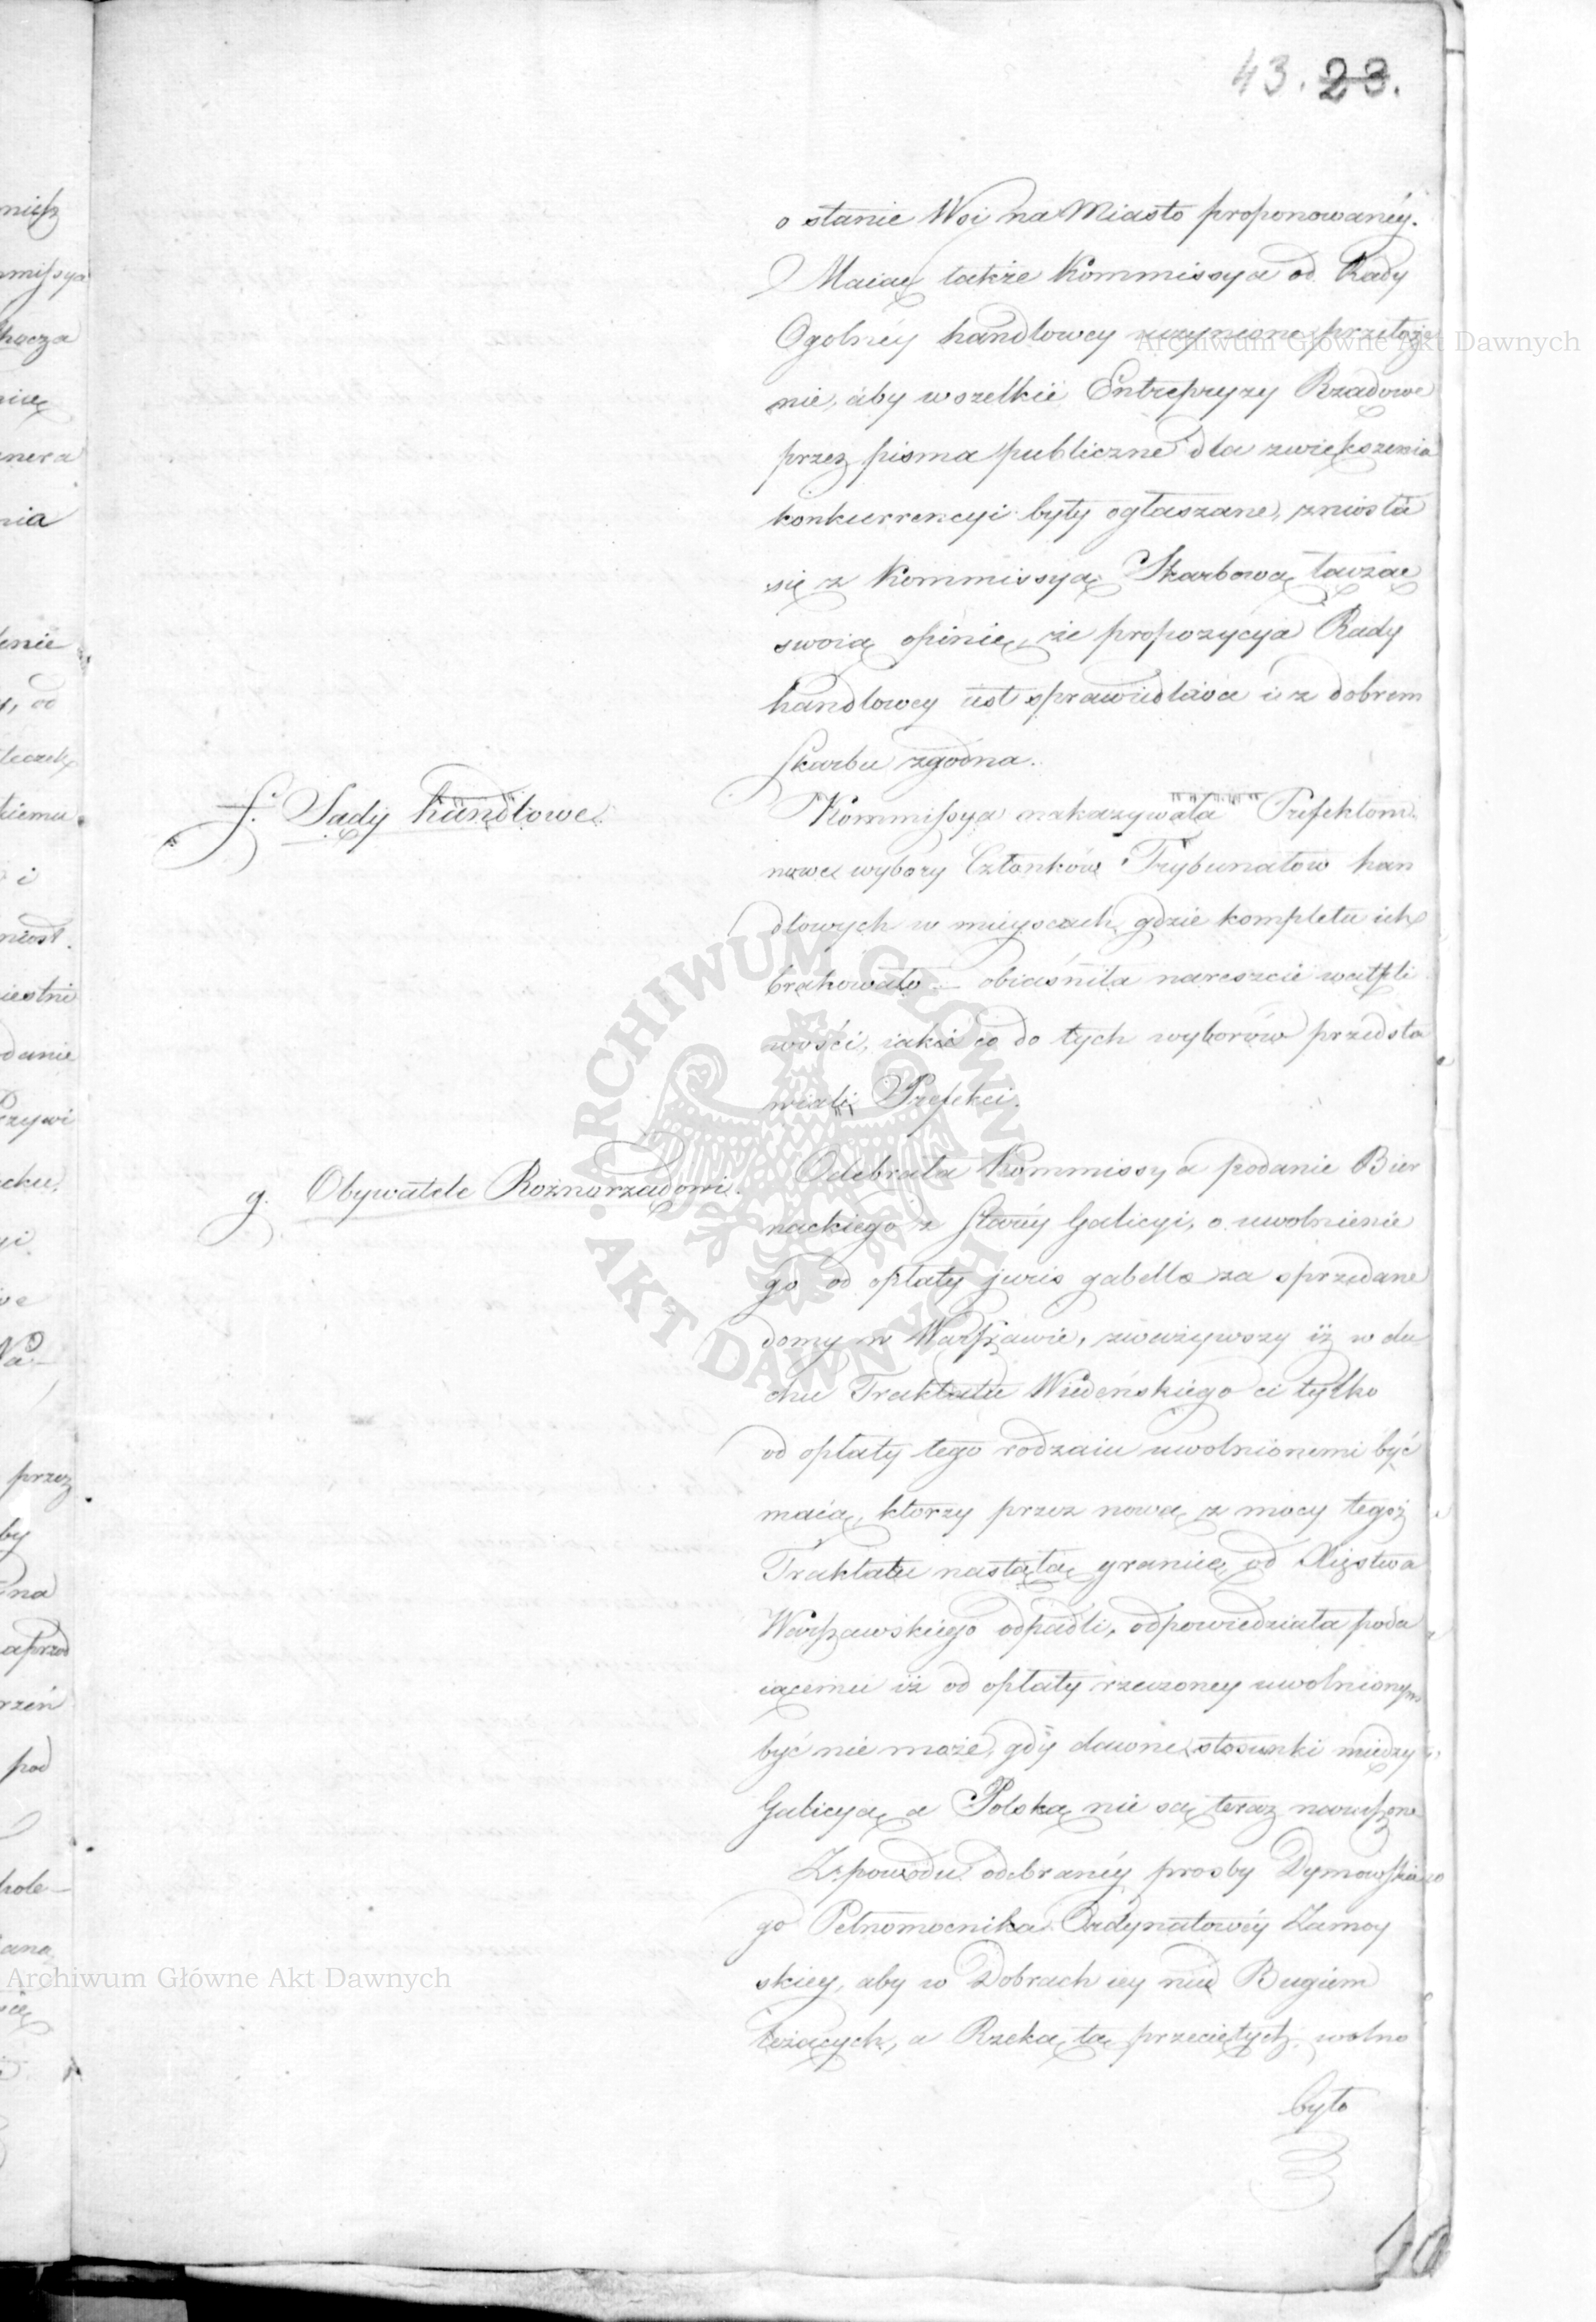 43. 23.
o stanie Wsi na Miasto proponowanéy.
Maiąc także Kommissya od Rady
Ogolnéy handlowey uczynione przełoże
nie, aby wszelkie Entrepryzy Rządowe
przez pisma publiczne dla zwiększenia
konkurrencyi były ogłaszane, zniosła
się z Kommissyą Skarbową łącząc
swoią opinię, że propozycya Rady
handlowey iest sprawiedliwa i z dobrem
Skarbu zgodna.
f. Sądy handlowe.
Kommissya nakazywała Prefektom
nowe wybory Członków Trybunałow han
dlowych w mieyscach gdzie kompletu ich
brakowało – obiaśniła nareszcie wątpli
wości, iakie co do tych wyborów przedsta
wiali Prefekci.
g. Obywatele Rożnorządowi.
Odebrała Kommissya podanie Bier
nackiego z Staréy Galicyi, o uwolnienie
go od opłaty juris gabella za sprzedane
domy w Warszawie, zważywszy iż w du
chu Traktatu Wiedeńskiego ci tylko
od opłaty tego rodzaiu uwolnionemi być
maią, ktorzy przez nową z mocy tegoż
Traktatu nastałą granicę od Xięstwa
Warszawskiego odpadli, odpowiedziała poda
iącemu iż od opłaty rzeczoney uwolnionym
być nie może, gdy dawne stosunki między
Galicyą a Polską nie są teraz naruszone
Z powodu odebranéy prosby Dymowskie
go Pełnomocnika Ordynatowéy Zamoy
skiey, aby w Dobrach iey nad Bugiem
leżących, a Rzeką tą przeciętych wolno
było
Archiwum Główne Akt Dawnych
Archiwum Główne Akt Dawnych
ARCHIWUM GŁÓWNE AKT DAWNYCH